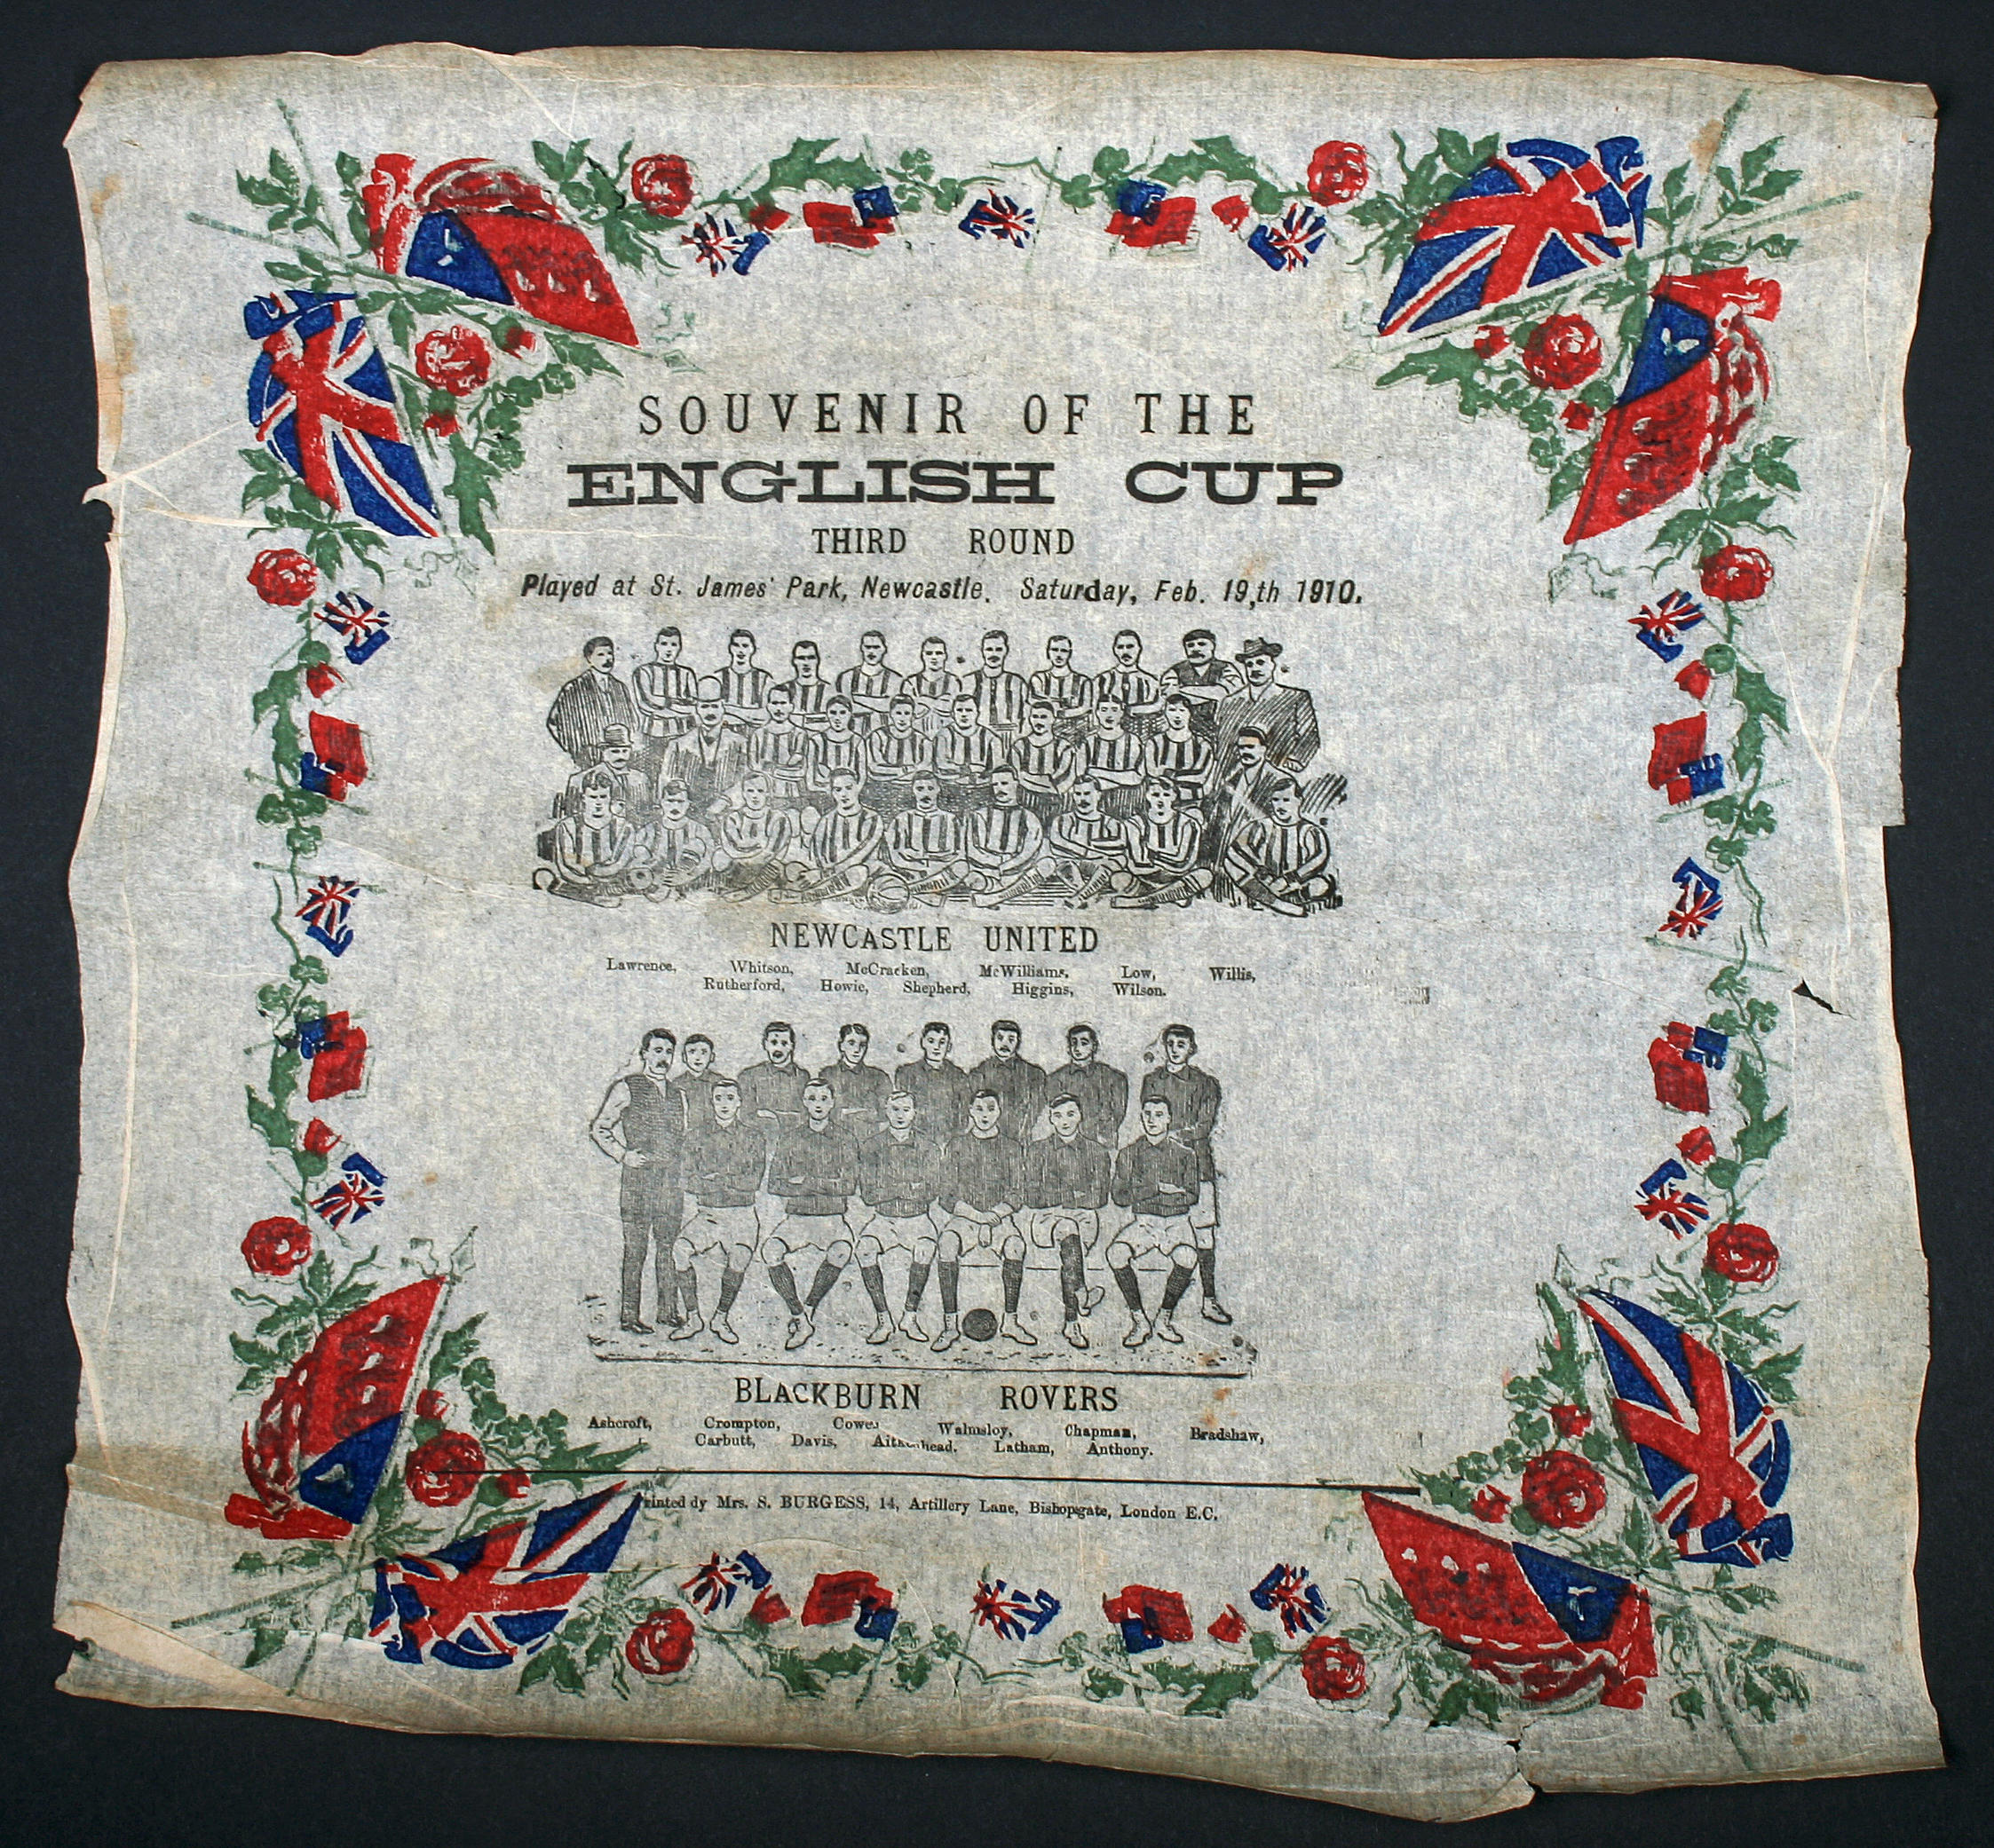 SOUVENIR OF THE
ENGLISH CUP
THIRD ROUND
Played at St. James' Park, Newcastle. Saturday, Feb. 19,th 1910.
NEWCASTLE UNITED
Lawrence, Whitson, McCracken, McWilliams, Low, Willis,
Rutherford, Howie, Shepherd, Higgins, Wilson.
BLACKBURN ROVERS
Ashcroft, Crompton, Walmsloy, Chapman, Bradshaw,
Carbutt, Davis, Latham, Anthony.
rinted dy Mrs. S. BURGESS, 14, Artillery Lane, Bishopsgate, London E.C.